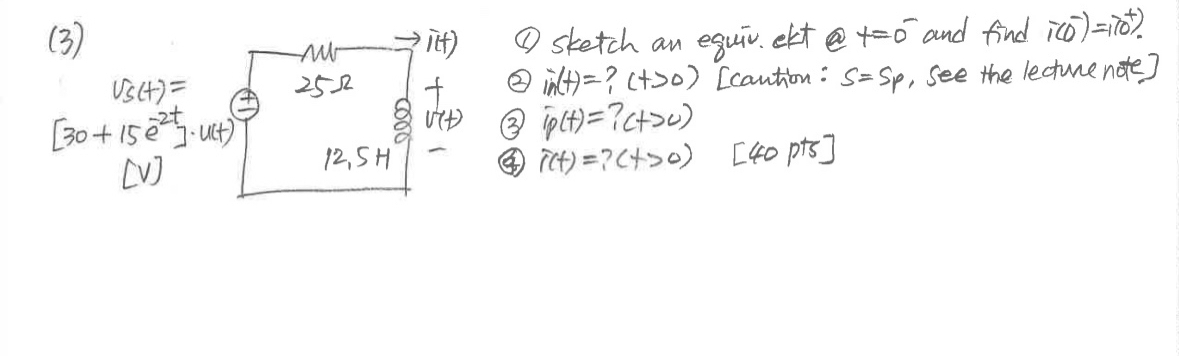 (3)
Vs(t)=
[30+15e^-2t]·u(t)
[V]
25Ω
12,5H
→ i(t)
+
v(t)
−
① sketch an equiv. ckt @ t=0⁻ and find i(0⁻)=i(0⁺)?
② in(t)=? (t>0) [caution: S=Sp, See the lecture note]
③ ip(t)=? (t>0)
④ i(t)=? (t>0) [40 pts]